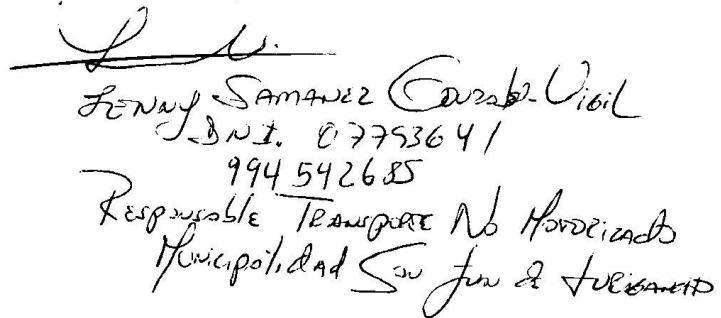 Jenny Samanez Gonzales-Vigil
DNI. 07793641
994 542685
Responsable Transporte No Motorizado
Municipalidad San Juan de Lurigancho